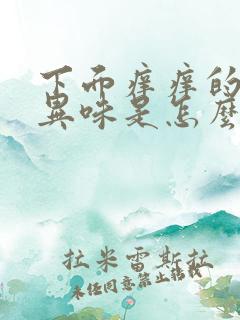 下而痒痒的
異味是怎麼
拉米雷斯拉
未经同意禁止转载